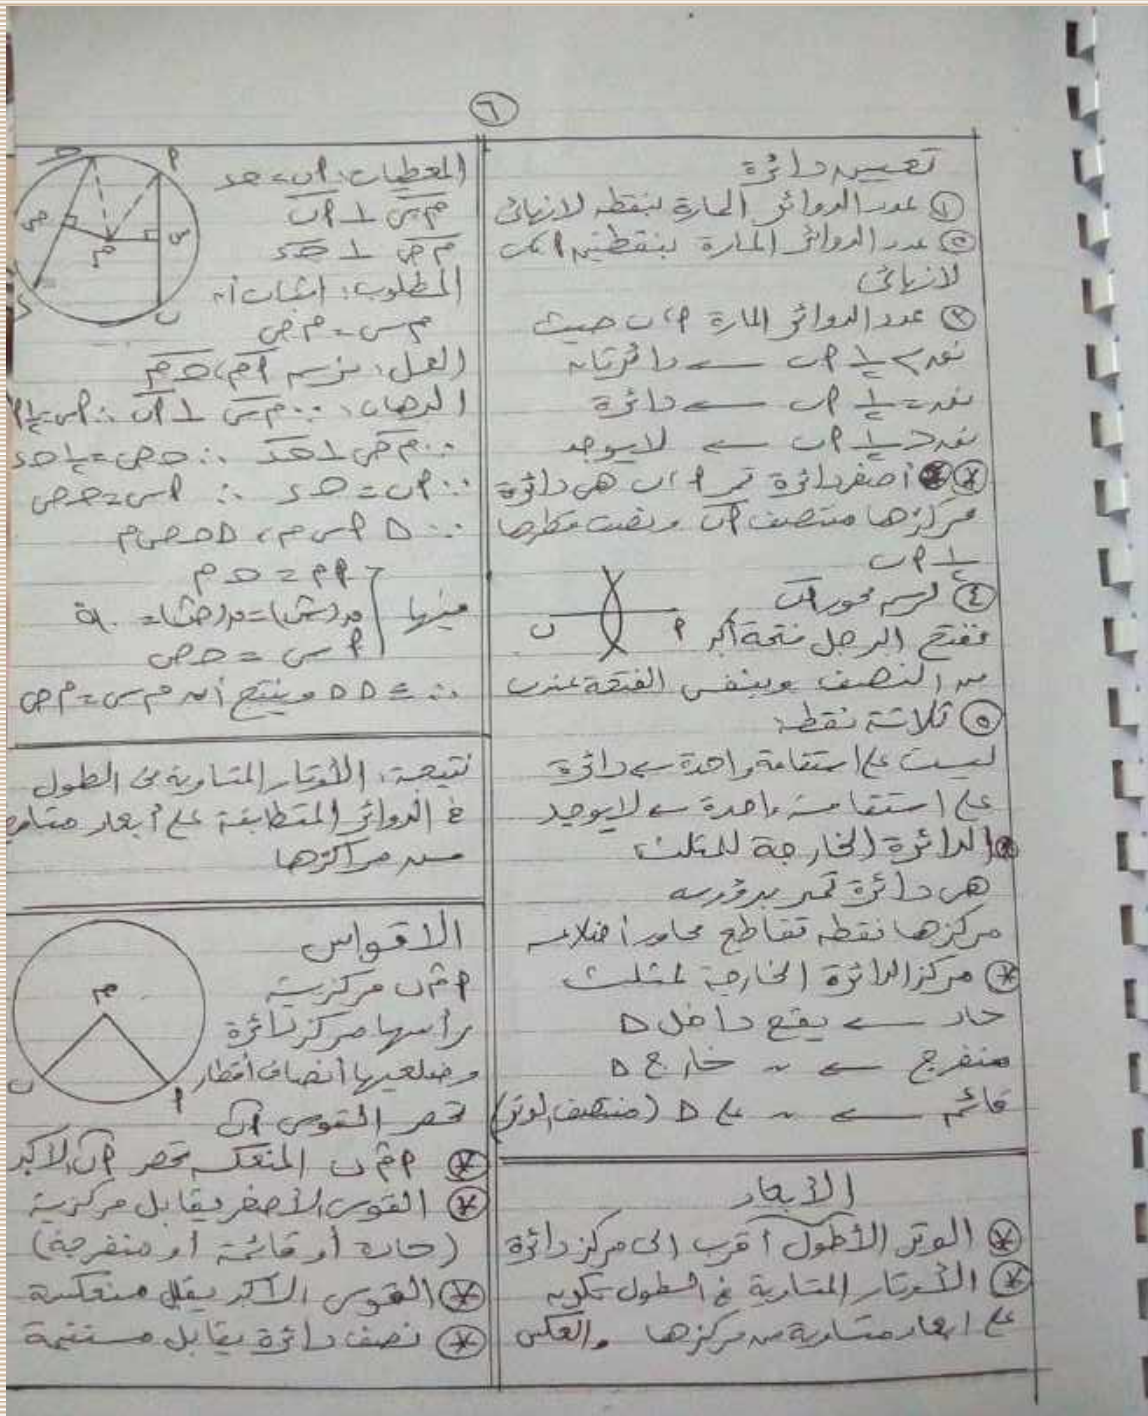 ٦
تعيين دائرة
① عدد الدوائر المارة بنقطه لانهائى
② عدد الدوائر المارة بنقطتين
لانهائى
③ عدد الدوائر المارة ب أ، ب حيث
نق > ½ أب ← دائرتان
نق = ½ أب ← دائرة
نق < ½ أب ← لا يوجد
* أصغر دائرة تمر أ، ب هى دائرة
مركزها منتصف أب ونصف قطرها
½ أب
④ لرسم محور أب
نفتح البرجل فتحة أكبر
من النصف وبنفس الفتحة عند ب
أ ب
⑤ ثلاثة نقطه
ليست على استقامة واحدة ← دائرة
على استقامة واحدة ← لا يوجد
الدائرة الخارجة للمثلث
هى دائرة تمر برؤوسه
مركزها نقطه تقاطع محاور أضلاعه
* مركز الدائرة الخارجة لمثلث
حاد ← يقع داخل Δ
منفرج ← 〃 خارج Δ
قائم ← 〃 على Δ (منتصف الوتر)
الأبعاد
* الوتر الأطول أقرب الى مركز دائرة
* الأوتار المتساوية فى الطول تكون
على ابعاد متساوية من مركزها والعكس
المعطيات: أب = حـ د
م س ⊥ أب
م ص ⊥ حـ د
المطلوب: اثبات أن
م س = م ص
العمل: نرسم أم، حـ م
البرهان: ∵ م س ⊥ أب ∴ أس = ½ أ
∵ م ص ⊥ حـ د ∴ حـ ص = ½ حـ د
∵ أب = حـ د ∴ أس = حـ ص
∴ Δ أ س م، Δ حـ ص م
فيها
أم = حـ م
ق(س) = ق(ص) = ٩٠
أس = حـ ص
∴ Δ ≡ Δ وينتج أن م س = م ص
أ ب حـ د س ص م
نتيجة: الأوتار المتساوية فى الطول
فى الدوائر المتطابقة على أبعاد
من مراكزها
الاقواس
أم ب مركزية
رأسها مركز دائرة
وضلعيها أنصاف أقطار
تحصر القوس أب
م أ ب
* أم ب المنعكسه تحصر أب الاكبر
* القوس الأصغر يقابل مركزية
(حاده أو قائمة أو منفرجة)
* القوس الاكبر يقابل منعكسة
* نصف دائرة يقابل مستقيمة